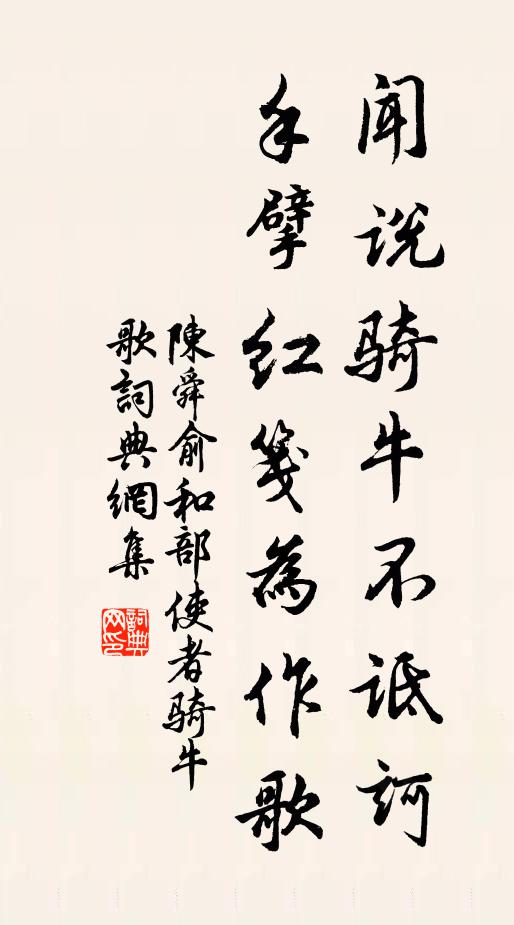 闻说骑牛不诋诃
手擘红笺为作歌
陳舜俞和部使者骑牛
歌詞典網集
詞典网印